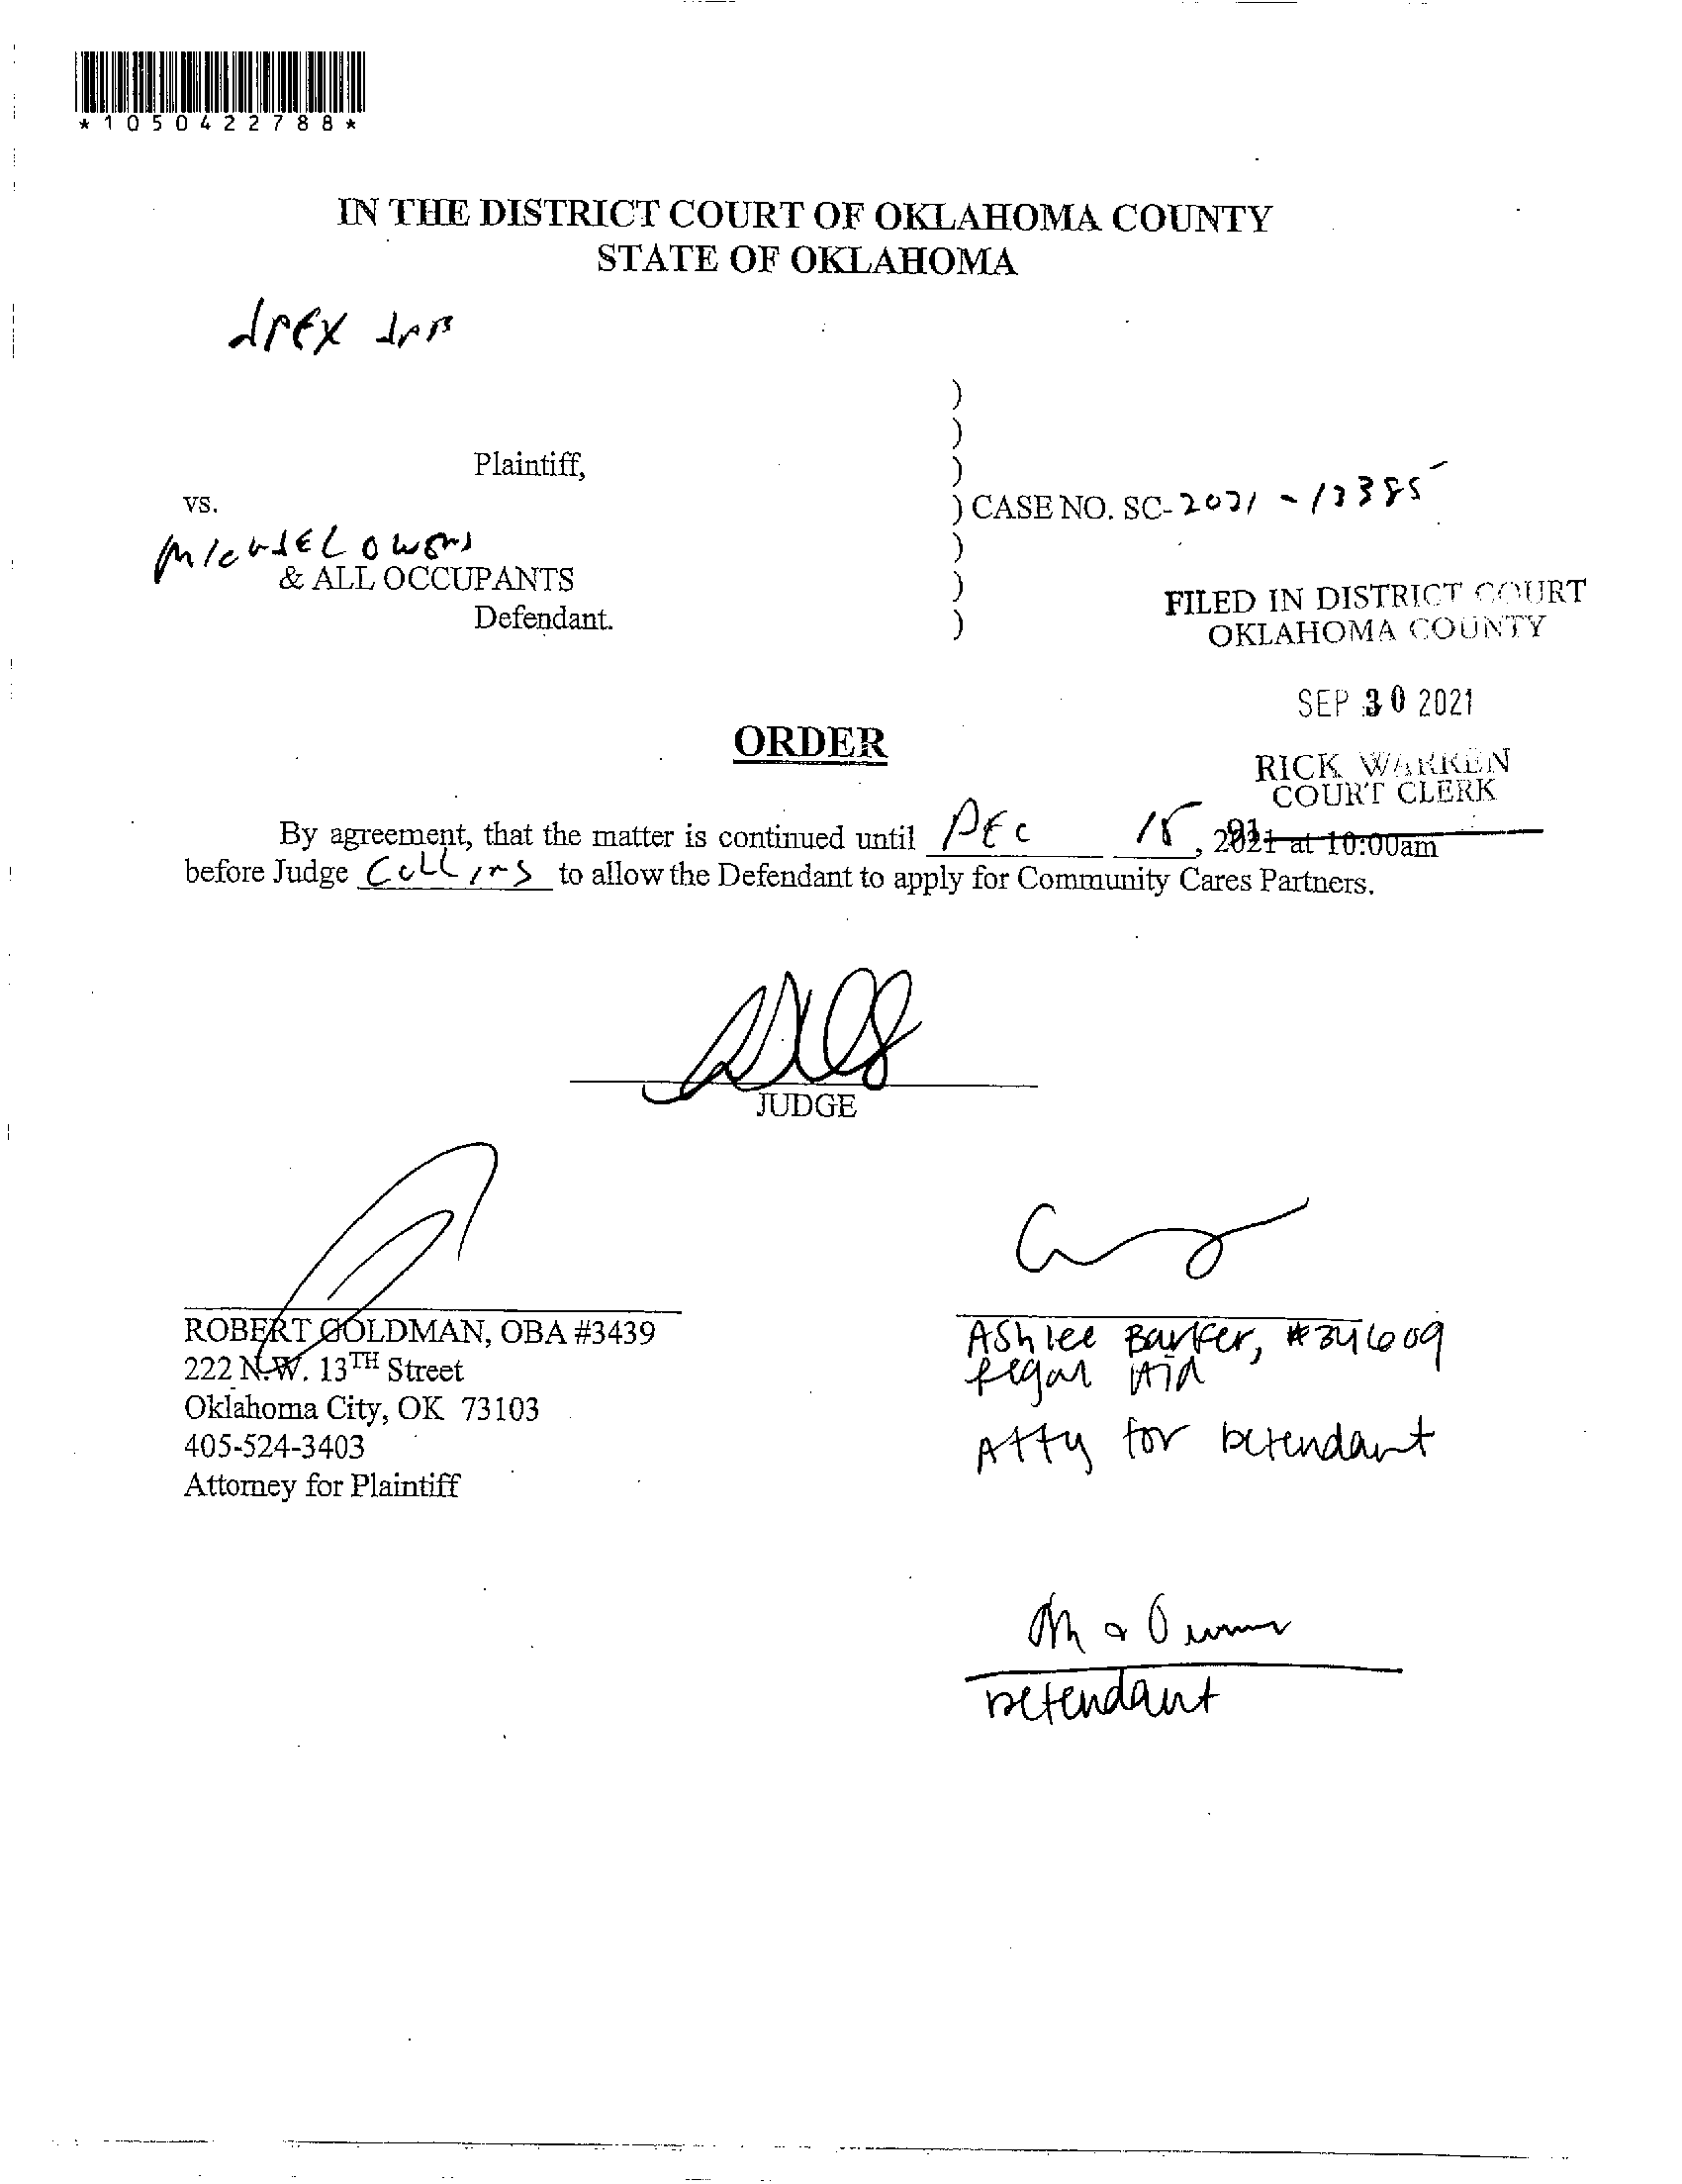 *1050422788*
IN THE DISTRICT COURT OF OKLAHOMA COUNTY
STATE OF OKLAHOMA
APEX
)
)
Plaintiff, )
vs. ) CASE NO. SC-2021-13385
MICHAEL OWENS )
& ALL OCCUPANTS )
Defendant. )
FILED IN DISTRICT COURT
OKLAHOMA COUNTY
SEP 30 2021
RICK WARREN
COURT CLERK
ORDER
By agreement, that the matter is continued until DEC 15, 2021 at 10:00am
before Judge COLLINS to allow the Defendant to apply for Community Cares Partners.
JUDGE
ROBERT GOLDMAN, OBA #3439
222 N.W. 13TH Street
Oklahoma City, OK 73103
405-524-3403
Attorney for Plaintiff
Ashlee Barker, #34609
Legal Aid
Atty for Defendant
Defendant